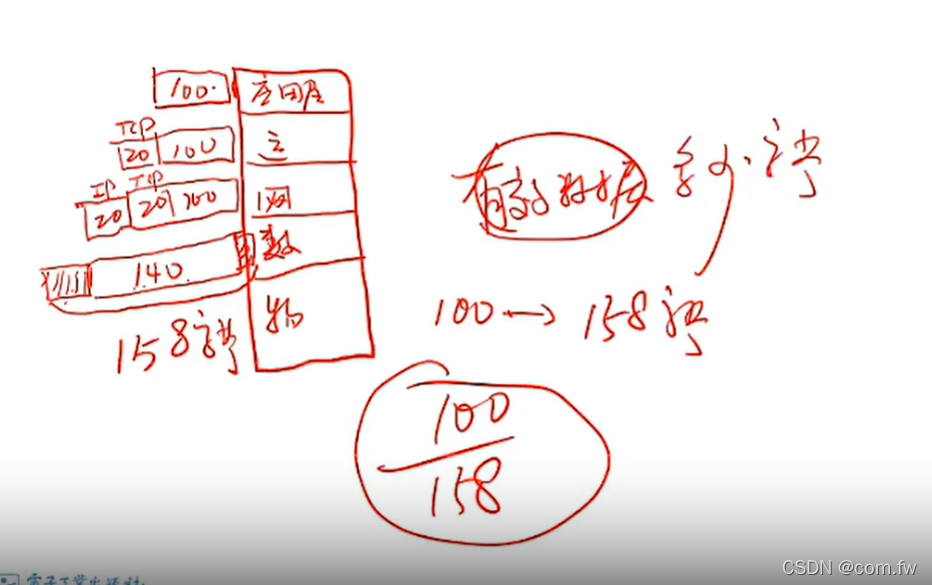 100. 应用层
TCP
20 100 主
IP TCP
20 20 100 网
140 数
158字节 物
有效数据 多少字节
100 → 158字节
100
158
电子工业出版社
CSDN @com.fw